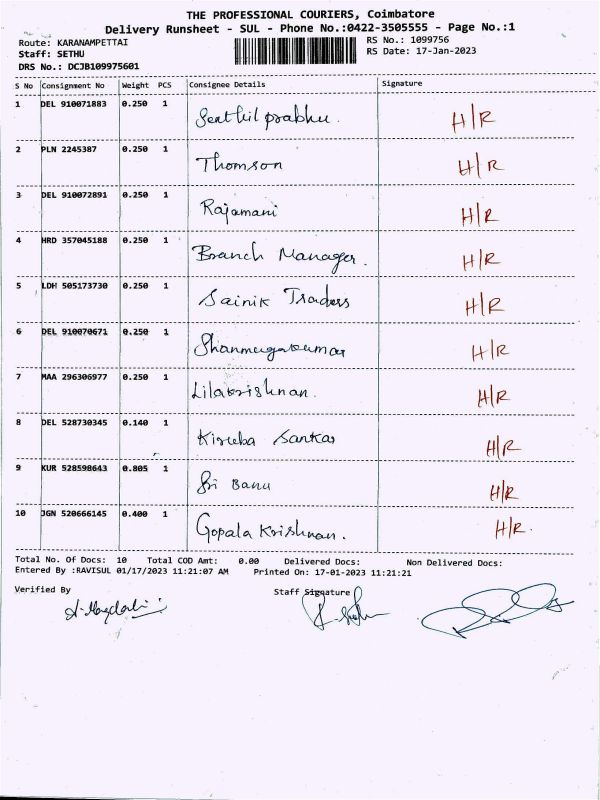 THE PROFESSIONAL COURIERS, Coimbatore
Delivery Runsheet - SUL - Phone No.:0422-3505555 - Page No.:1
Route: KARANAMPETTAI RS No.: 1099756
Staff: SETHU RS Date: 17-Jan-2023
DRS No.: DCJB109975601
S No Consignment No Weight PCS Consignee Details Signature
1 DEL 910071883 0.250 1 Senthil prabhu. H/R
2 PLN 2245387 0.250 1 Thomson H/R
3 DEL 910072891 0.250 1 Rajamani H/R
4 HRD 357045188 0.250 1 Branch Manager. H/R
5 LDH 505173730 0.250 1 Sainik Traders H/R
6 DEL 910070671 0.250 1 Shanmugakumar H/R
7 MAA 296306977 0.250 1 Lilakrishnan. H/R
8 DEL 528730345 0.140 1 Kiruba Sankar H/R
9 KUR 528598643 0.805 1 Sri Banu H/R
10 JGN 520666145 0.400 1 Gopala Krishnan. H/R.
Total No. Of Docs: 10 Total COD Amt: 0.00 Delivered Docs: Non Delivered Docs:
Entered By :RAVISUL 01/17/2023 11:21:07 AM Printed On: 17-01-2023 11:21:21
Verified By Staff Signature